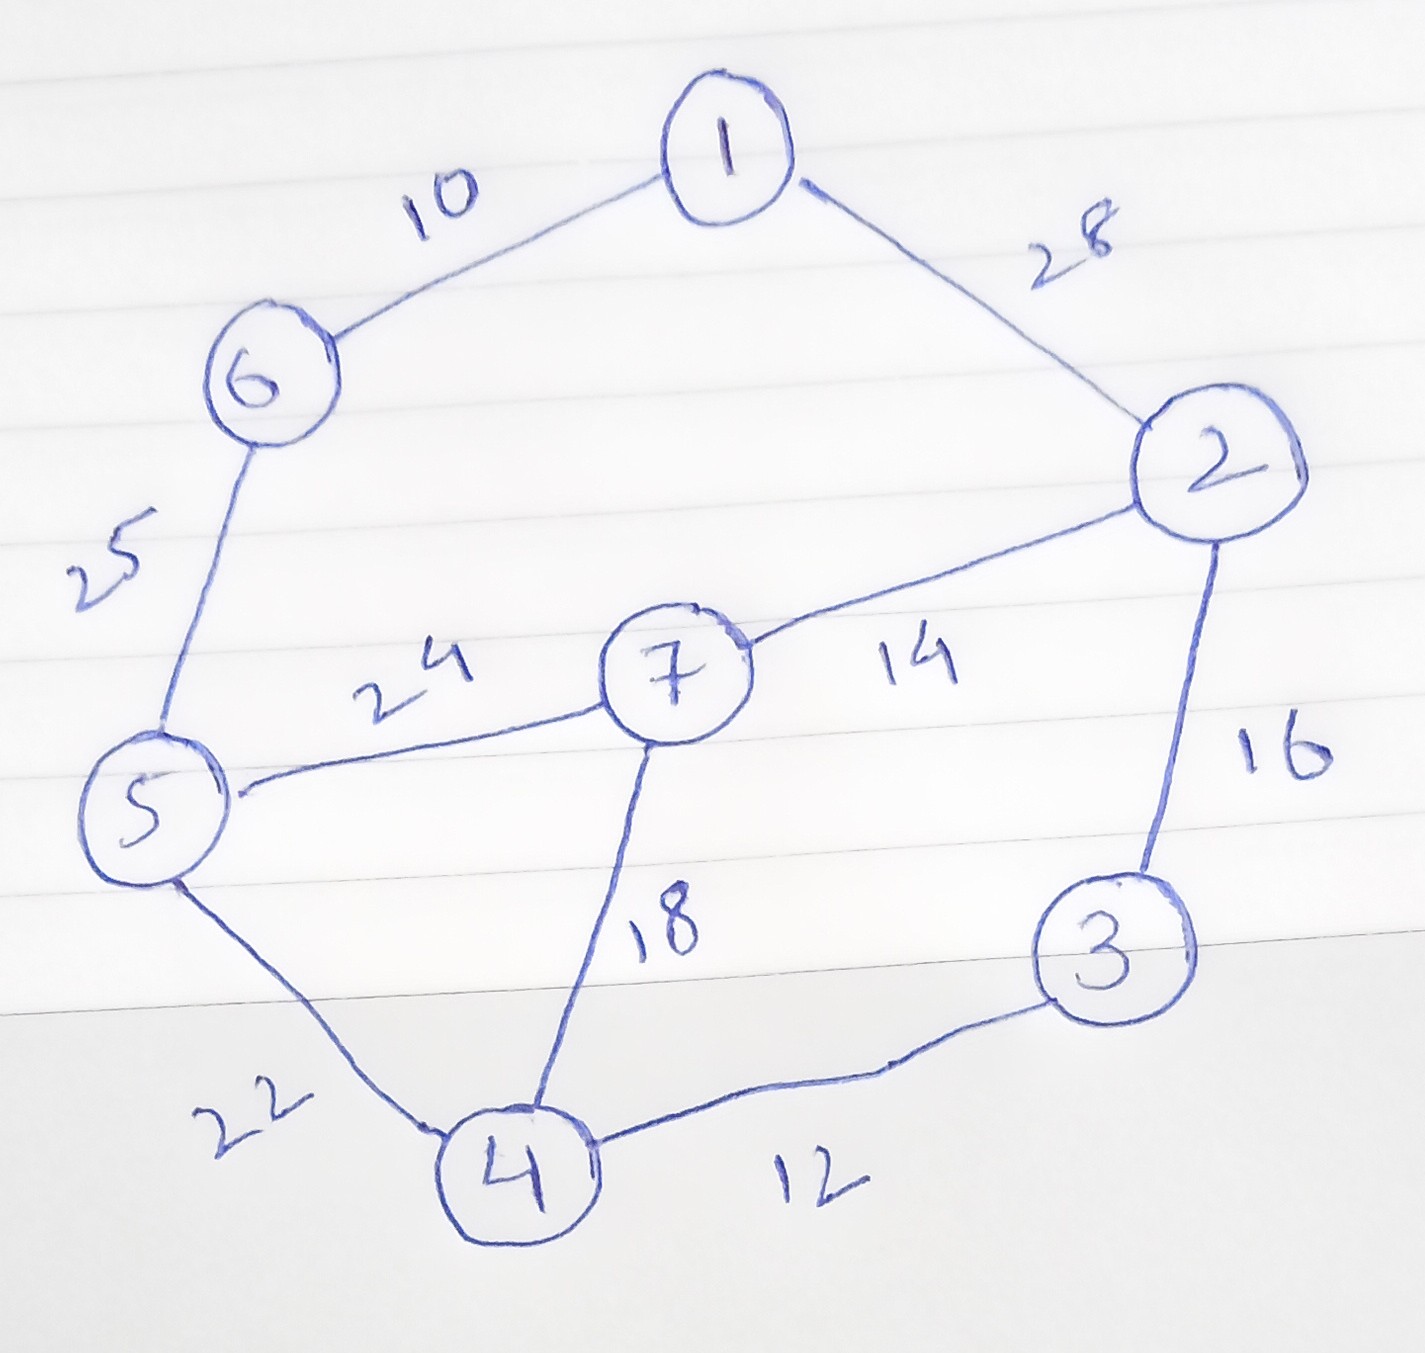 1
10
28
6
2
25
24
7
14
5
16
18
3
22
4
12